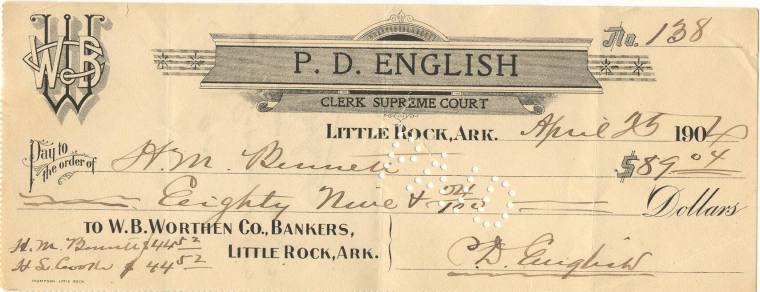 WBW Co
No. 138
P. D. ENGLISH
CLERK SUPREME COURT
LITTLE ROCK, ARK. April 25 1904
Pay to the order of H. M. Bennett $89.04
Eighty Nine & 04/100 Dollars
PAID
TO W. B. WORTHEN CO., BANKERS,
LITTLE ROCK, ARK.
H. M. Bennett $44 52
H S Cooke $ 44 52
P.D. English
THOMPSON, LITTLE ROCK